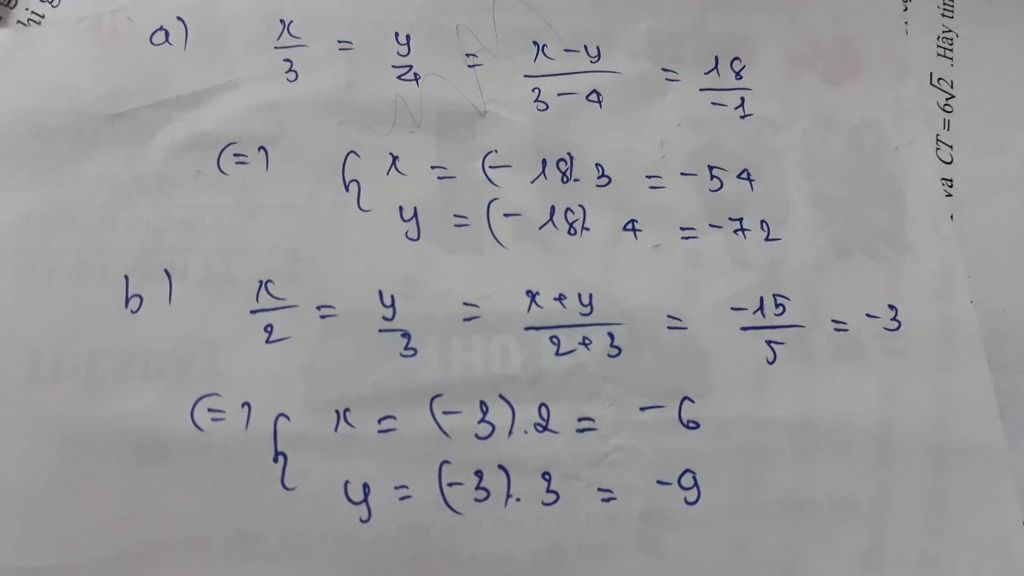 a) x/3 = y/4 = x-y/3-4 = 18/-1
(=) { x = (-18).3 = -54
y = (-18). 4 = -72
b) x/2 = y/3 = x+y/2+3 = -15/5 = -3
(=) { x = (-3).2 = -6
y = (-3).3 = -9
và CT = 6√2 .Hãy tín
hi g